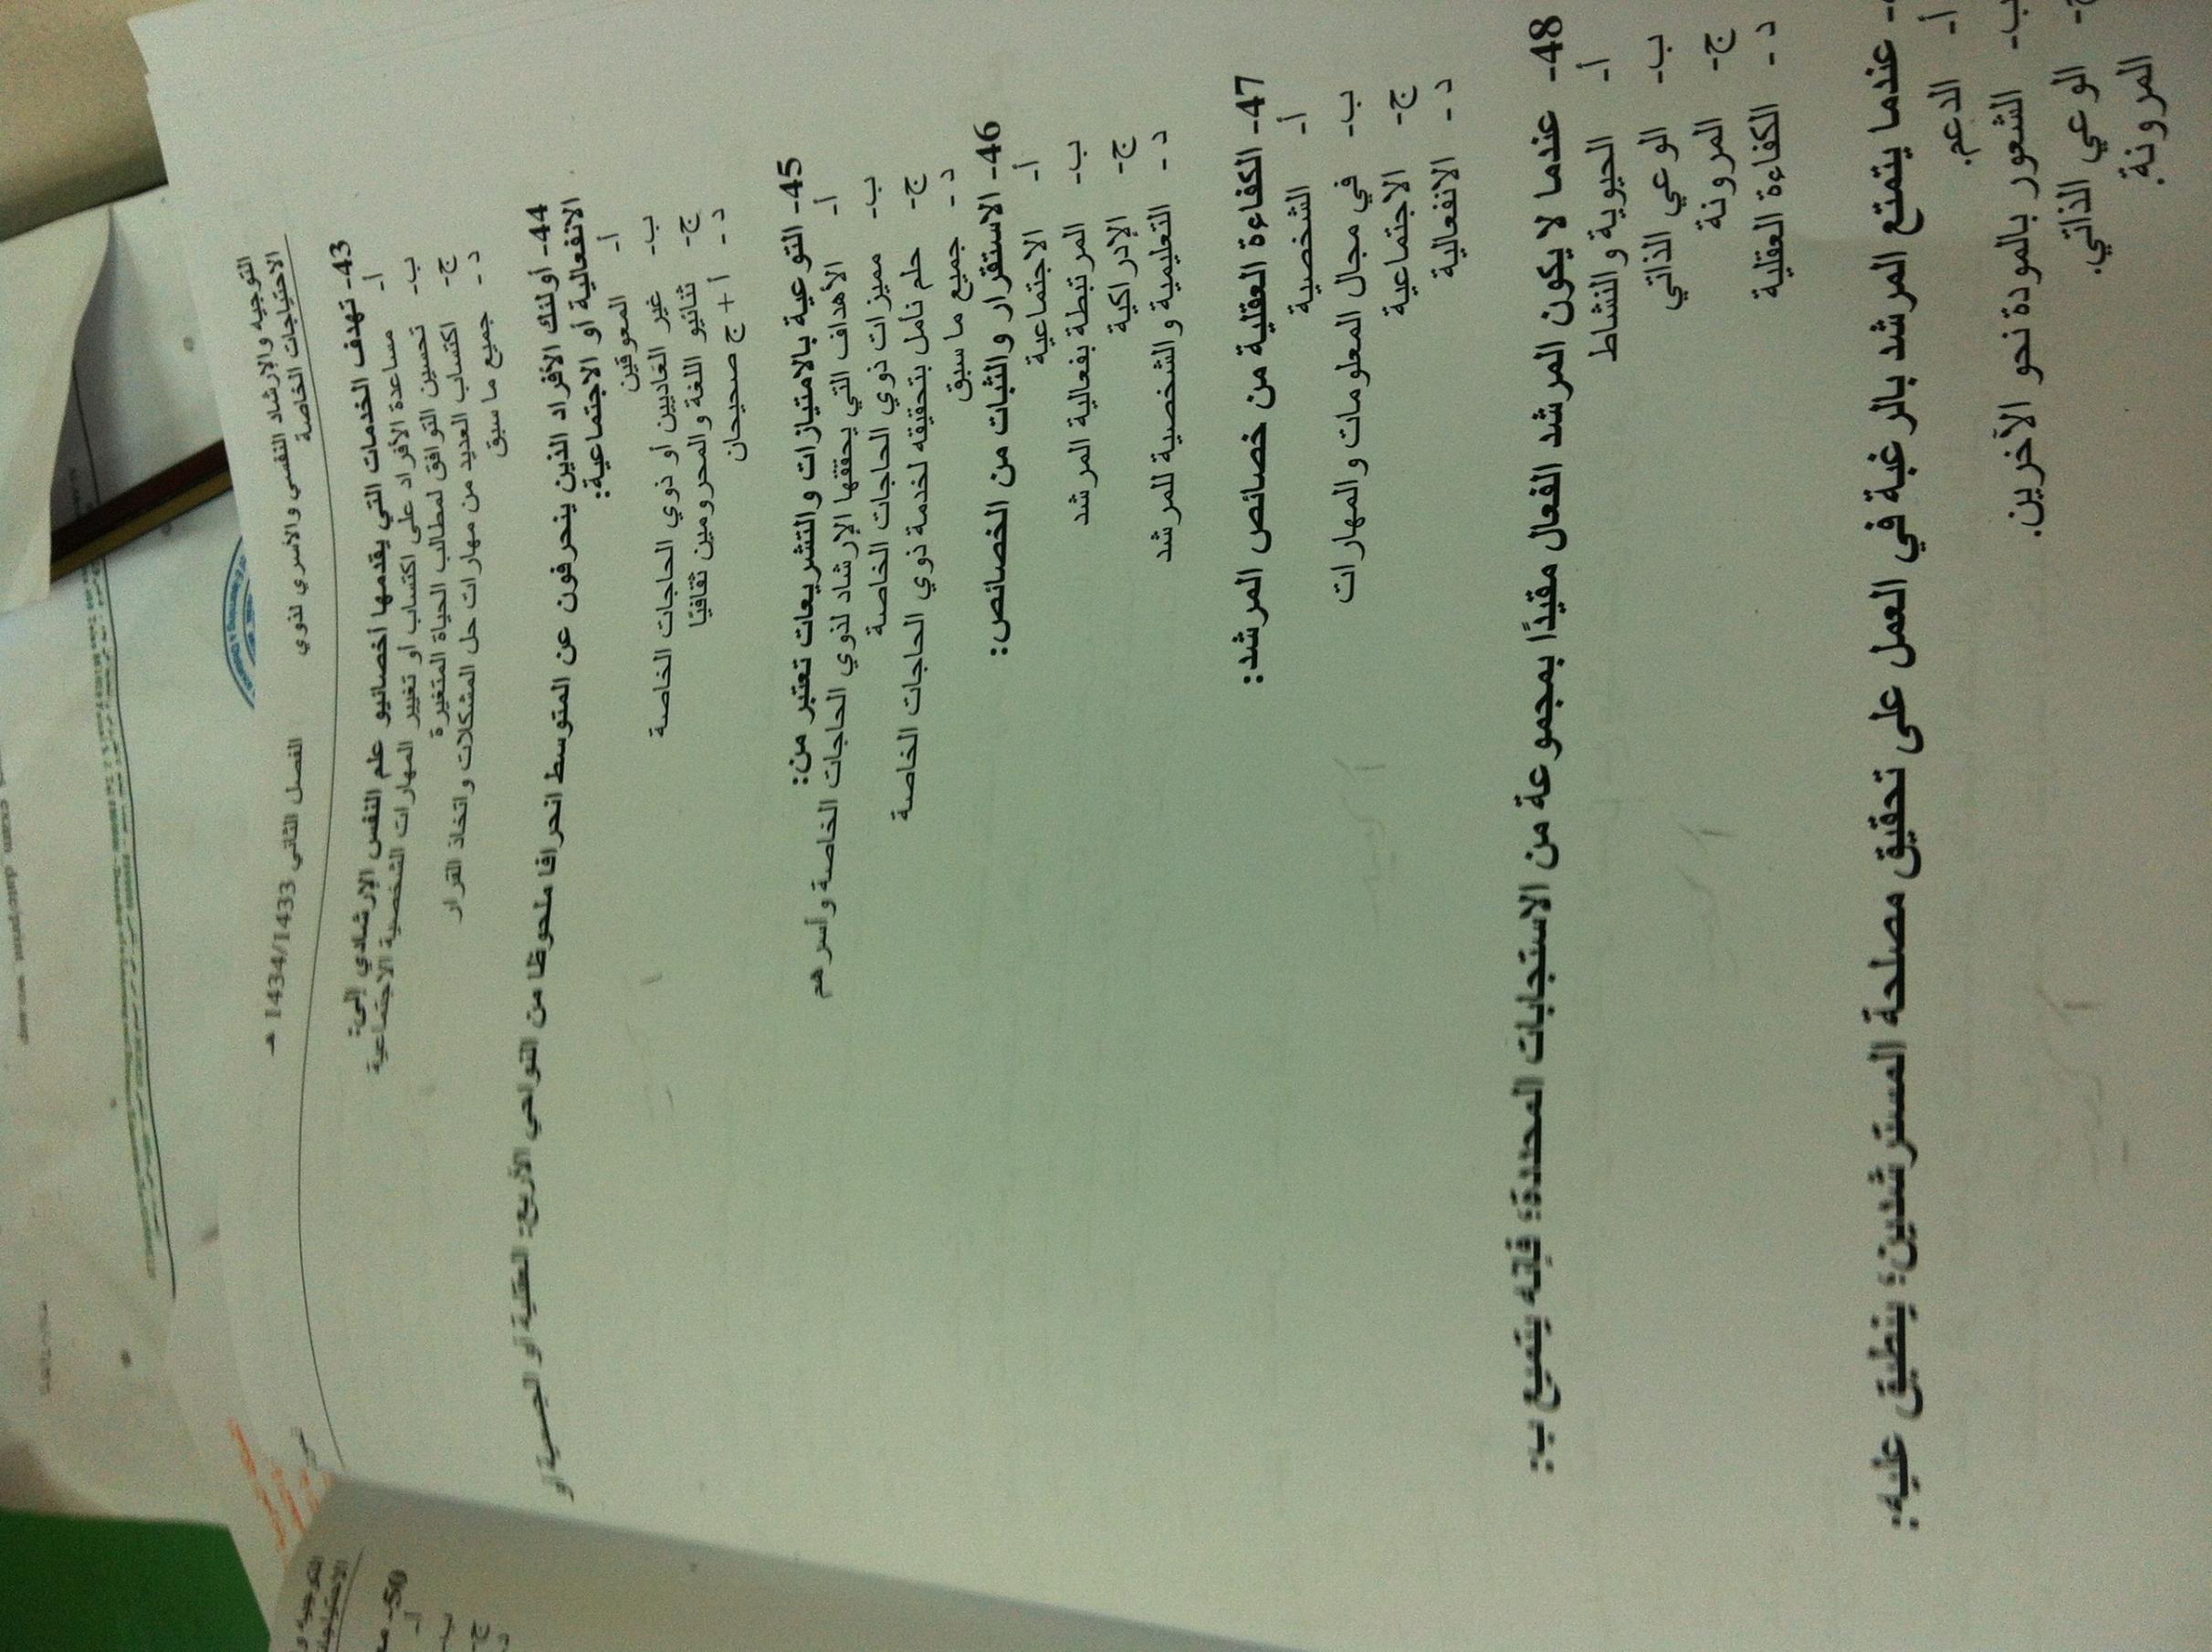 التوجيه والإرشاد النفسي والأسري لذوي
الاحتياجات الخاصة
الفصل الثاني 1434/1433 هـ
43- تهدف الخدمات التي يقدمها أخصائيو علم النفس الإرشادي إلى:
أ- مساعدة الأفراد على اكتساب أو تغيير المهارات الشخصية الاجتماعية
ب- تحسين التوافق لمطالب الحياة المتغيرة
ج- اكتساب العديد من مهارات حل المشكلات واتخاذ القرار
د- جميع ما سبق
44- أولئك الأفراد الذين ينحرفون عن المتوسط انحرافا ملحوظا من النواحي الأربع: العقلية أو الجسمية أو
الانفعالية أو الاجتماعية:
أ- المعوقين
ب- غير العاديين أو ذوي الحاجات الخاصة
ج- ثنائيو اللغة والمحرومين ثقافيًا
د- أ + ج صحيحان
45- التوعية بالامتيازات والتشريعات تعتبر من:
أ- الأهداف التي يحققها الإرشاد لذوي الحاجات الخاصة وأسرهم
ب- مميزات ذوي الحاجات الخاصة
ج- حلم نأمل بتحقيقه لخدمة ذوي الحاجات الخاصة
د- جميع ما سبق
46- الاستقرار والثبات من الخصائص:
أ- الاجتماعية
ب- المرتبطة بفعالية المرشد
ج- الإدراكية
د- التعليمية والشخصية للمرشد
47- الكفاءة العقلية من خصائص المرشد:
أ- الشخصية
ب- في مجال المعلومات والمهارات
ج- الاجتماعية
د- الانفعالية
48- عندما لا يكون المرشد الفعال مقيدًا بمجموعة من الاستجابات المحددة؛ فإنه يتمتع ب:
أ- الحيوية والنشاط
ب- الوعي الذاتي
ج- المرونة
د- الكفاءة العقلية
عندما يتمتع المرشد بالرغبة في العمل على تحقيق مصلحة المسترشدين؛ ينطبق عليه:
أ- الدعم.
ب- الشعور بالمودة نحو الآخرين.
ج- الوعي الذاتي.
المرونة.
50-